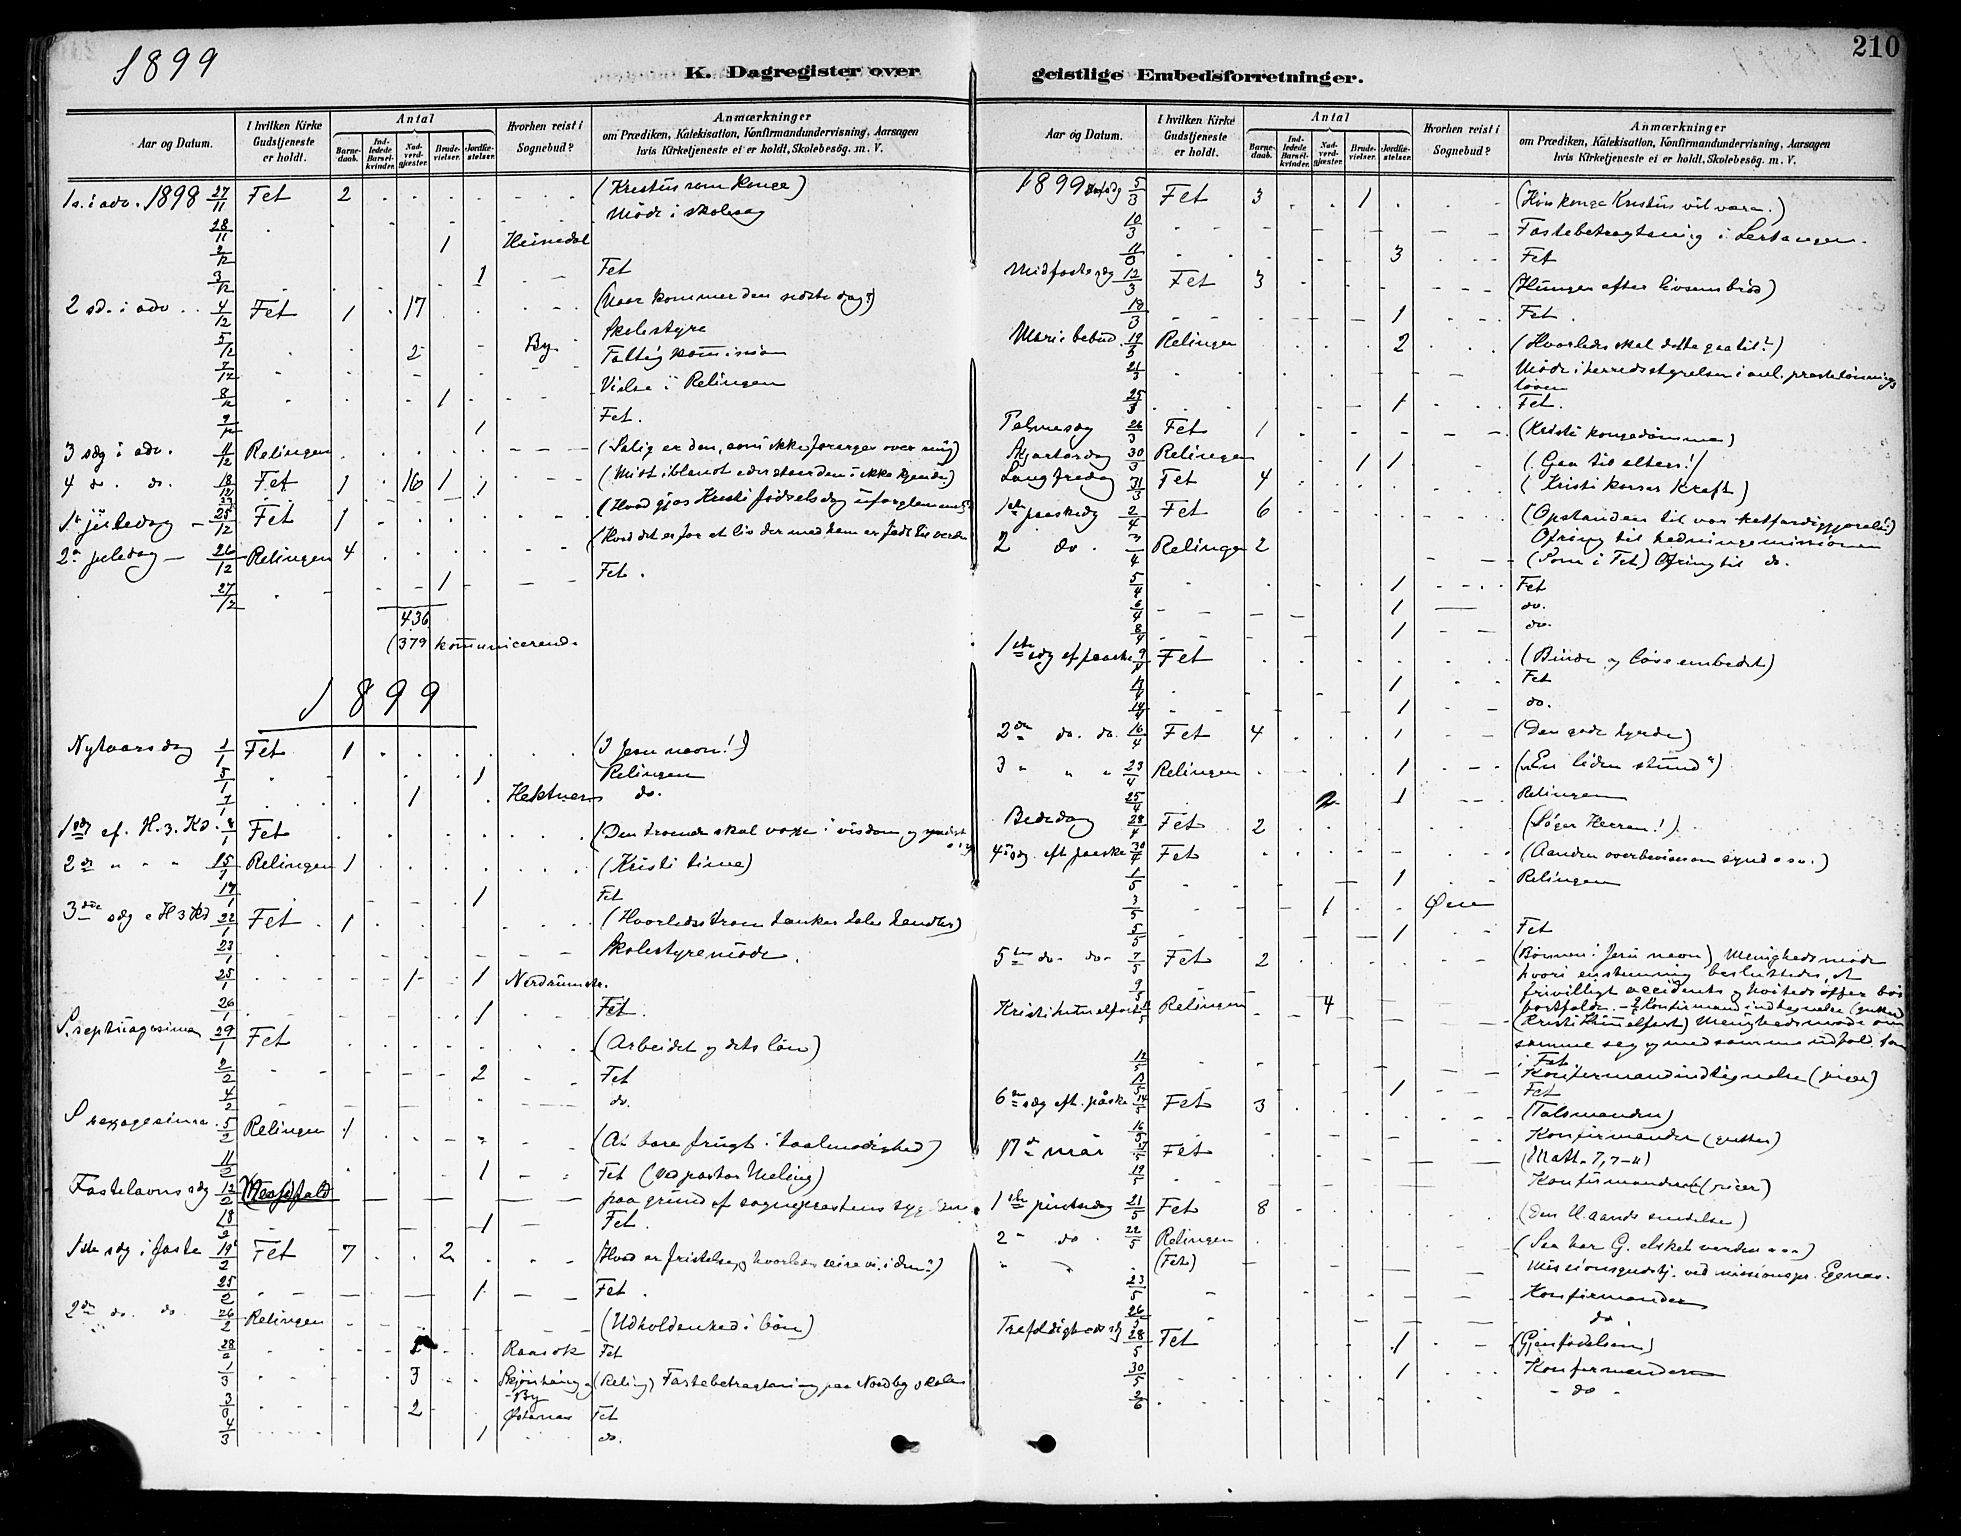 1899
210
K. Dagregister over geistlige Embedsforretninger.
Aar og Datum. I hvilken Kirke Gudstjeneste er holdt. Antal Barnedaab. Indledede Barselkvinder. Nadverdgjester. Brudevielser. Jordfæstelser. Hvorhen reist i Sognebud? Anmærkninger om Prædiken, Katekisation, Konfirmandundervisning, Aarsagen hvis Kirketjeneste ei er holdt, Skolebesøg. m. V.
1 s. i adv. 1898 27/11 Fet 2 (Kristus som konge)
28/11 Møde i skolesag
2/12 1 Heinedal
3/12 1 Fet
2 sd. i adv. 4/12 Fet 1 17 (Naar kommer den sidste dag?)
5/12 2 By Skolestyre
7/12 kommission
8/12 1 Vielse i Relingen
9/12 1 Fet.
3 sdg i adv. 11/12 Relingen (Salig er den, som ikke forarges over mig)
4 do. do. 18/12 Fet 1 16 1 1 (Midt iblandt eder staar den i ikke kjender)
1ste juledag 25/12 Fet 1 (Hvad gjør Kristi fødselsdag uforglemmelig)
2den juledag 26/12 Relingen 4 (Hvad det er for et liv der med ham er født til verden
27/12 1 Fet.
436
(379 kommunicerend.
1899
Nytaarsdag 1/1 Fet 1 (I Jesu navn!)
5/1 1 Relingen
7/1 1 Hektner do.
1 sdg ef. H. 3. Kd. 8/1 Fet (Den troende skal voxe i visdom og yndest
2den " " " 15/1 Relingen 1 (Kristi time)
17/1 1 Fet
3die sdg e H 3 Kd 22/1 Fet 1 (Hvorledes troen tænker taler handler)
23/1 Skolestyremøde.
25/1 1 1 Nerdrum
26/1 1 Fet.
S. septuagesima 29/1 Fet (Arbeidet og dets løn)
2/2 2 Fet
4/2 do.
S sexagesima 5/2 Relingen 1 (At bære frugt i taalmodighed)
11/2 1 Fet (ved pastor Meling)
Fastelavns sdg 12/2 Messefald paa grund af sogneprestens sygdom
18/2 1 Fet.
1ste sdg i faste 19/2 Fet 7 2 (Hvad er fristelse og hvorledes seire vi i den?)
25/2 1 Fet.
2den do. do. 26/2 Relingen (Udholdenhed i bøn)
28/2 Raasok Fet
1/3 3 Skjønhaug og By (Reling) Fastebetragtning paa Nordby skole
3/3 2 Østenaa Fet
4/3 1 do.
Aar og Datum. I hvilken Kirke Gudstjeneste er holdt. Antal Barnedaab. Indledede Barselkvinder. Nadverdgjester. Brudevielser. Jordfæstelser. Hvorhen reist i Sognebud? Anmærkninger om Prædiken, Katekisation, Konfirmandundervisning, Aarsagen hvis Kirketjeneste ei er holdt, Skolebesøg. m. V.
1899 5/3 Fet 3 1 (Hvis konge Kristus vil være.)
10/3 Fastebetragtning i Lertangen.
11/3 3 Fet
Midfaste sdg 12/3 Fet 3 (Hunger efter livsens brød)
18/3 1 Fet.
Mari bebud. 19/3 Relingen 2 (Hvorledes skal dette gaa til?)
21/3 Møde i herredsstyrelsen i anl. prestelønningsloven
25/3 1 Fet.
Palmesdg 26/3 Fet 1 (Kristi kongedømme)
Skjærtorsdag 30/3 Relingen 1 1 (Gaa til alters!)
Langfredag 31/3 Fet 4 (Kristi korses kraft)
1ste paaskedg 2/4 Fet 6 (Opstanden til vor retfærdiggjørelse)
Ofring til hedningemissionen
2 do. 3/4 Relingen 2 (Som i Fet) Ofring til do.
5/4 1 Fet
6/4 1 do.
8/4 1 do.
1ste sdg ef paaske 9/4 Fet (Binde og løse embedet)
13/4 1 Fet
14/4 1 do.
2den do. do. 16/4 Fet 4 1 (Den gode hyrde)
3 " " " 23/4 Relingen 1 ("En liden stund")
25/4 2 1 Relingen
Bededag 28/4 Fet 2 (Søger Herren!)
4de sdg. eft paaske 30/4 Fet (Aanden overbeviser om synd o sv.)
1/5 1 Relingen
3/5 1 Øen
5/5 1 Fet
5te do. do. 7/5 Fet 2 (Bønnen i Jesu navn) Menighedsmøde
9/5 hvori enstemmig besluttedes, at
frivilligt accidents og høitidsoffer bør
bortfalde. – Konfirmandindtegnelse (gutter)
Kristi himmelfart 11/5 Relingen 4 (Kristi himmelfart) Menighedsmøde om
samme sag og med samme udfald som
i Fet
12/5 Konfirmandindtegnelse (piger)
13/5 1 Fet
6te sdg eft. påske 14/5 Fet 3 (Talsmanden)
16/5 Konfirmander (gutter)
17de mai 17/5 Fet (Math. 7, 7-11)
19/5 Konfirmander (piger)
1ste pintsedag 21/5 Fet 8 (Den H. aands sendelse)
2 do 22/5 Relingen (Saa har G. elsket verden)
" " (Fet) Missionsgudstj. ved missionspr. Egenæs.
23/5 Konfirmander
26/5 do.
Trefoldigheds sdg 28/5 Fet 1 (Gjenfødelsen)
30/5 1 Konfirmander
2/6 do